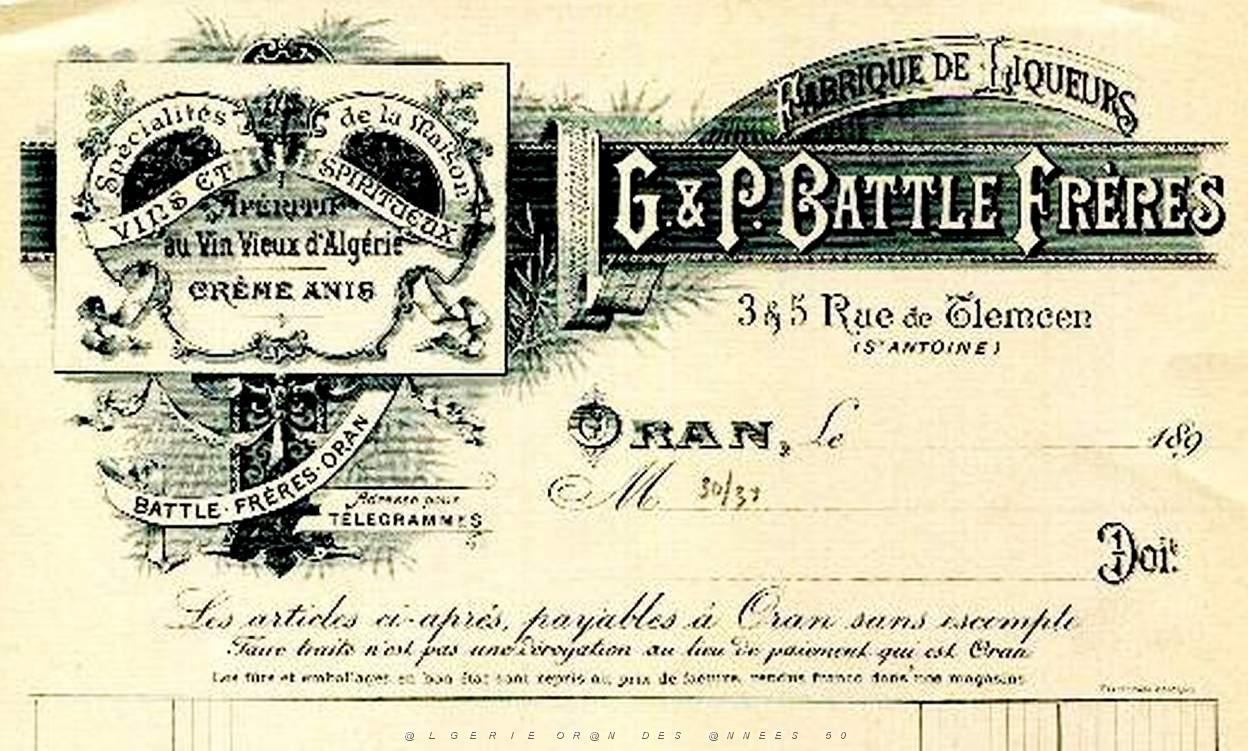 Spécialités de la Maison
VINS ET SPIRITUEUX
APÉRITIF
au Vin Vieux d'Algérie
CRÈME ANIS
BATTLE·FRÈRES·ORAN
Adresse pour
TÉLÉGRAMMES
FABRIQUE DE LIQUEURS
G. & P. BATTLE FRÈRES
3 & 5 Rue de Tlemcen
(St ANTOINE)
ORAN, Le 189
M 30/31
Doit
Les articles ci-après, payables à Oran sans escompte
Faire traite n'est pas une dérogation au lieu de paiement qui est Oran
Les fûts et emballages en bon état sont repris au prix de facture, rendus franco dans nos magasins
@LGERIE OR@N DES @NNEES 50